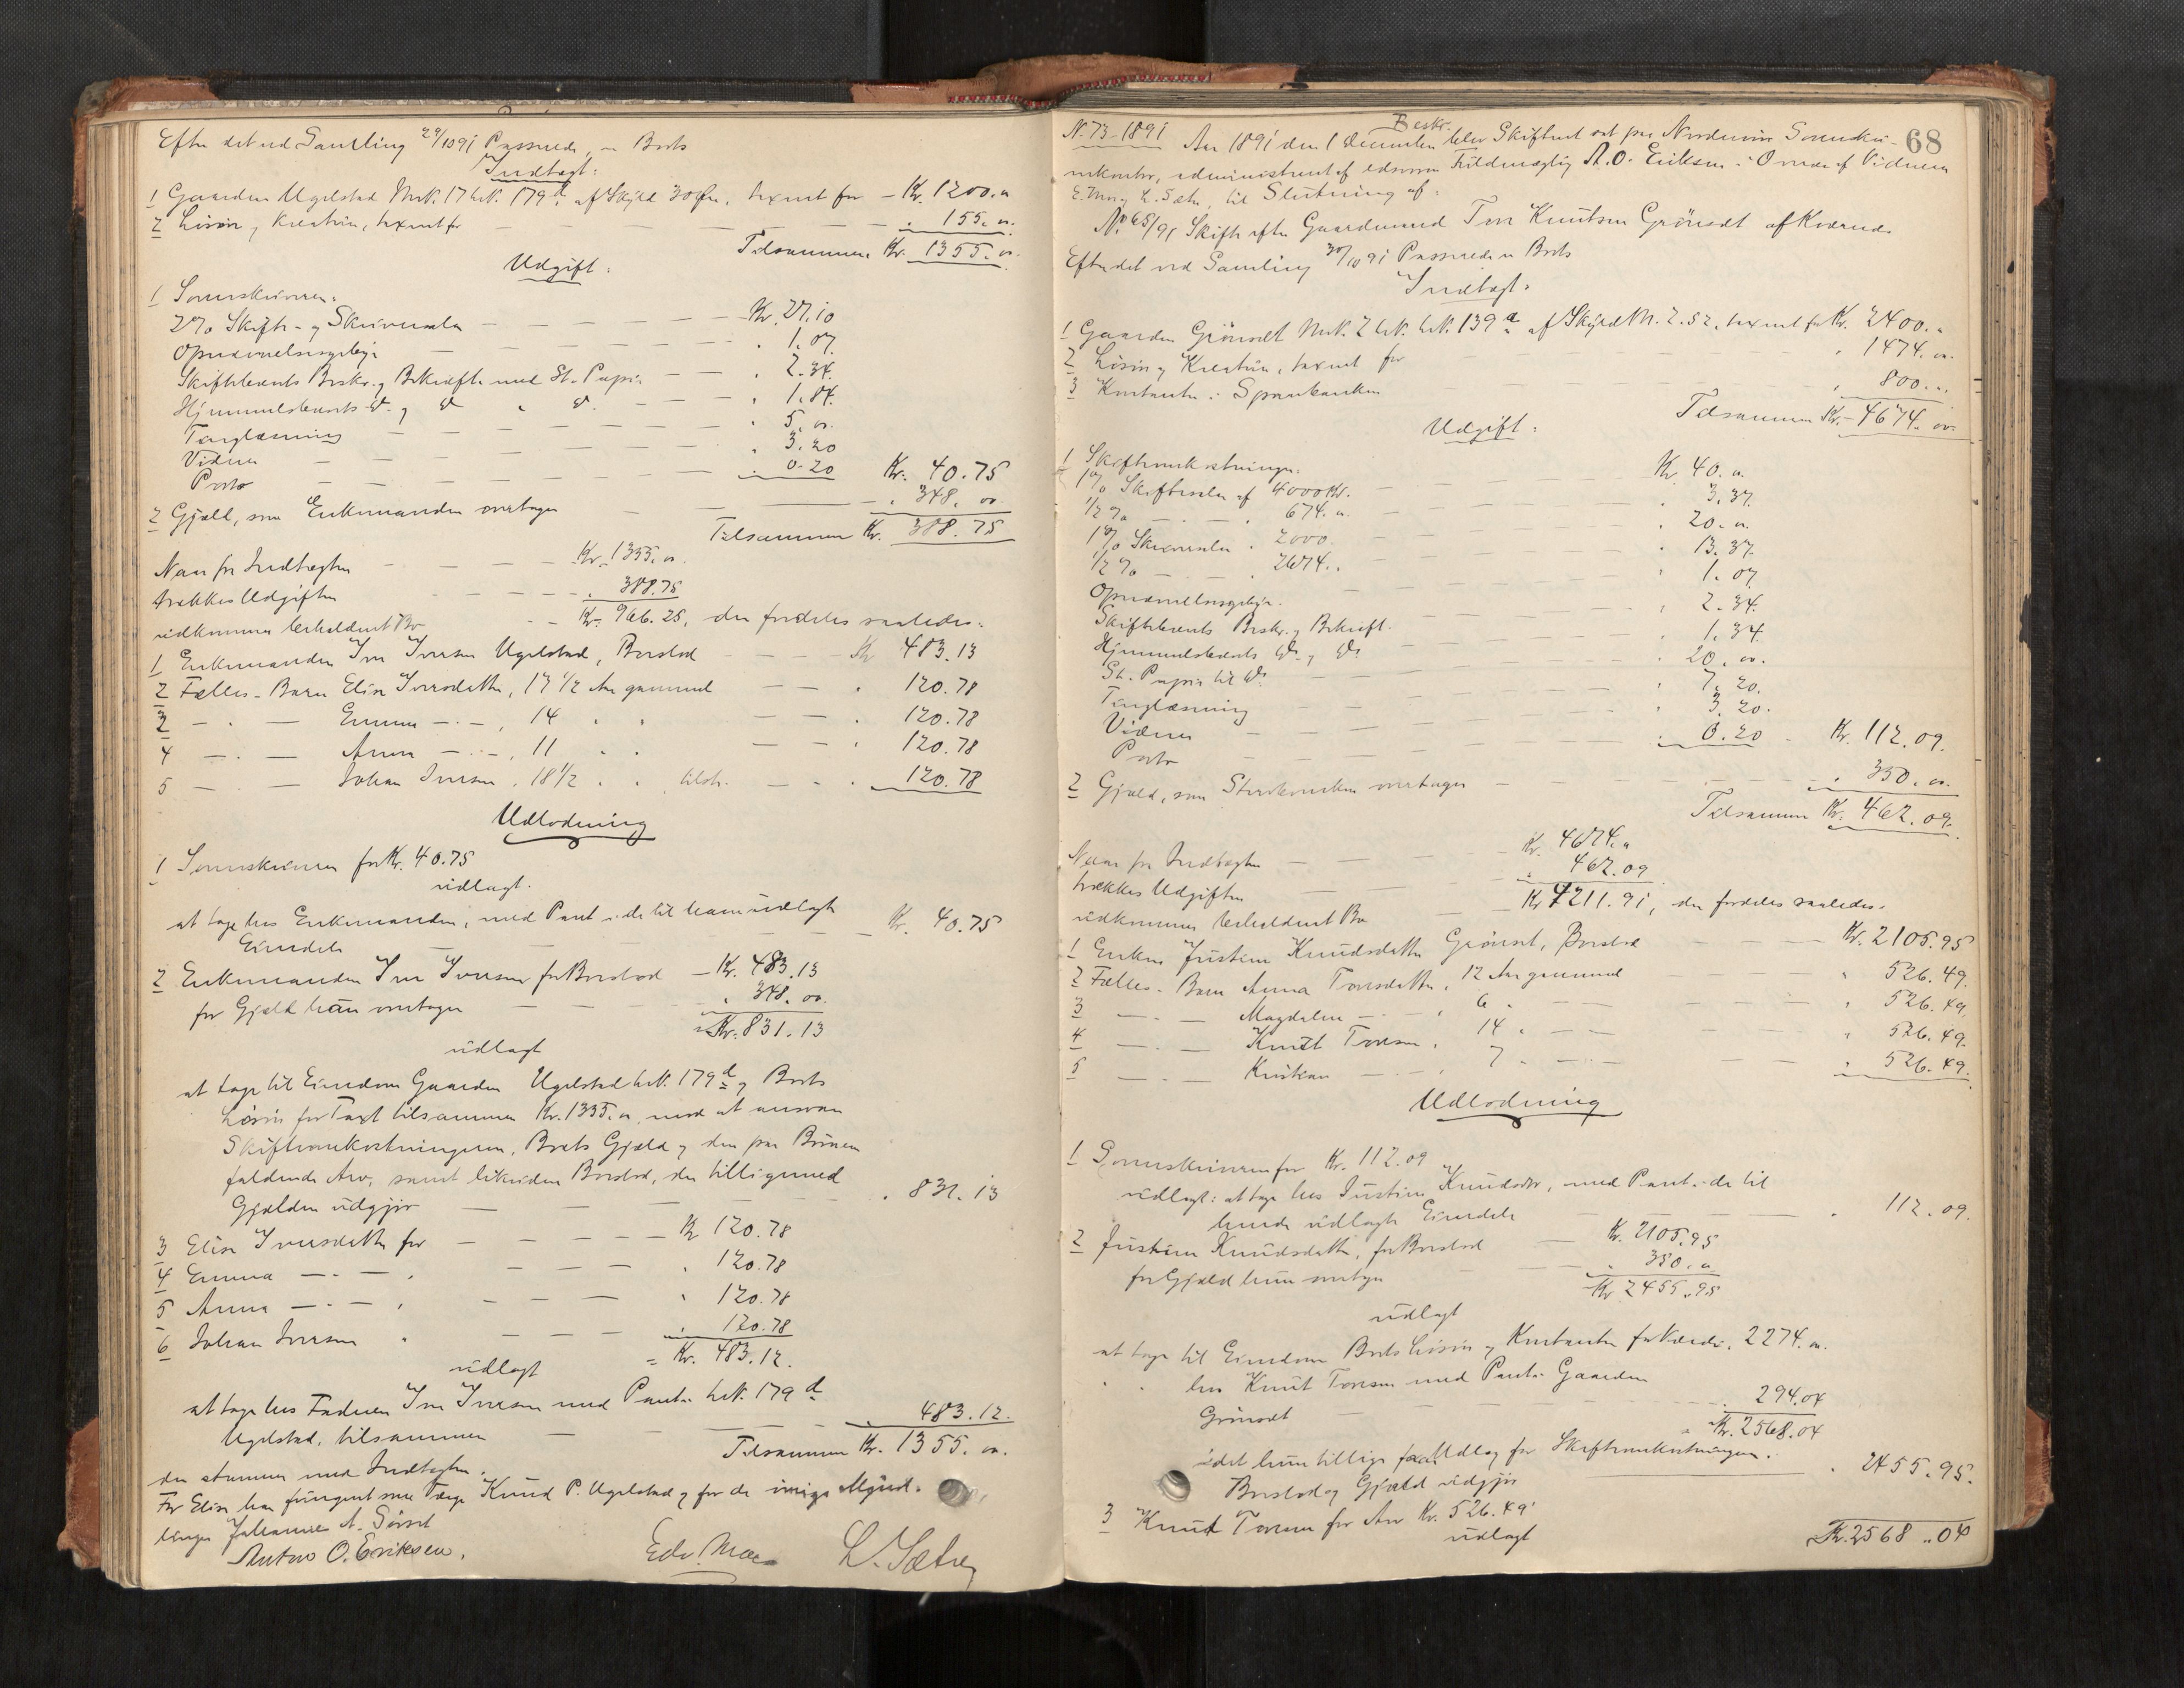 Efter det ved Samling 29/10 91 Passerede er Boets
Indtægt:
1 Gaarden Ugelstad M.N. 17 L.N. 179 d. af Skyld 30 Øre, taxeret for - Kr. 1200. "
2 Løsøre og Kreature, taxeret for — — — " 155. "
Tilsammen Kr. 1355. "
Udgift:
1 Sorenskriveren:
2% Skifte- og Skriversalær — — — Kr. 27.10
Opnævnelsesgebyr — — — " 1.07
Skiftebrevets Beskr. og Bekræft. med St. Papir — — " 2.34
Hjemmelsbrevets do. og do " do. — — " 1.84
Tinglæsning — — — " 5. "
Vidner — — — " 3.20
Porto — — — " 0.20 Kr. 40.75
2 Gjæld, som Enkemanden overtager — — " 348. oo
Tilsammen Kr. 388.75
Naar fra Indtægten — — — Kr. 1355. "
trækkes Udgiften — — — " 388.75
udkommer beholdent Bo — — Kr. 966.25, der fordeles saaledes:
1 Enkemanden Iver Iversen Ugelstad, Boeslod — — Kr 483.13
2 Fælles-Barn Elise Iversdatter, 17 1/2 Aar gammel — — " 120.78
3 — " — Emma — " —, 14 " " — — " 120.78
4 — " — Anna — " —, 11 " " — — " 120.78
5 — " — Johan Iversen, 18 1/2 " " tilst. — " 120.78
Udlodning
1 Sorenskriveren for Kr. 40.75
udlagt.
at tage hos Enkemanden, med Pant i de til ham udlagte
Eiendele — — — Kr. 40.75
2 Enkemanden Iver Iversen for Boeslod — Kr. 483.13
for Gjæld han overtager — " 348. oo
Kr. 831.13
udlagt
at tage til Eiendom Gaarden Ugelstad L.N. 179 d og Boets
Løsøre for Taxt tilsammen Kr. 1355. " mod at ansvare
Skifteomkostningerne, Boets Gjæld og den paa Børnene
faldende Arv, samt likviden Boeslod, der tilligemed
Gjælden udgjør — — — " 831.13
3 Elise Iversdatter for — — — Kr 120.78
4 Emma — " — " — — — " 120.78
5 Anna — " — " — — — " 120.78
6 Johan Iversen " — — — " 120.78
udlagt = Kr. 483.12.
at tage hos Faderen Iver Iversen med Pant i L.N. 179 d
Ugelstad, tilsammen — — — 483.12.
Tilsammen Kr. 1355. oo.
der stemmer med Indtægten.
For Elise har fungeret som Værge Knud P. Ugelstad og for de øvrige Mynd-
linger Johannes A. Sørset
Anton O. Eriksen. Edv. Moe L. Sætre
68
Beskr.
N. 73-1891 Aar 1891 den 1 December blev Skifteret sat paa Nordmøre Sorenskri-
verkontor, administreret af edsvoren Fuldmægtig A. O. Eriksen i Overvær af Vidnerne
E. Moe og L. Sætre, til Slutning af:
No. 65/91 Skifte efter Gaardmand Tore Knutsen Grønset af Kvernes
Efter det ved Samling 30/10 91 Passerede er Boets
Indtægt:
1 Gaarden Grønset M.N. 2 L.N. 139 a. af Skyld M. 2.52, taxeret for Kr. 2400. "
2 Løsøre og Kreature, taxeret for — — — " 1474. oo.
3 Kontanter i Sparebanken — — — " 800. "
Tilsammen Kr. 4674. oo.
Udgift:
1 Skifteomkostninger:
1% Skiftesalær af 4000 Kr. — — — Kr 40. "
1/2% — " — " 674. " — — — " 3.37.
1% Skriversalær " 2000. — — — " 20. "
1/2% — " — " 2674. " — — — " 13.37.
Opnævnelsesgebyr. — — — " 1.07
Skiftebrevets Beskr. og Bekræft. — — " 2.34.
Hjemmelsbrevets do. og do — — " 1.34.
St. Papir til do. — — — " 20. oo.
Tinglæsning — — — " 7.20.
Vidner — — — " 3.20.
Porto — — — " 0.20 Kr. 112.09.
2 Gjæld, som Stervboenken overtager — — " 350. oo.
Tilsammen Kr. 462.09.
Naar fra Indtægten — — — Kr. 4674. "
trækkes Udgiften — — — " 462.09
udkommer beholdent Bo — — Kr 4211.91, der fordeles saaledes:
1 Enken Justine Knudsdatter Grønset, Boeslod — — Kr. 2105.95
2 Fælles-Barn Anna Toresdatter, 12 Aar gammel — — " 526.49.
3 — " — Magdalene — " —, 6 " — " — — " 526.49.
4 — " — Knut Toresen, 14 " — " — — " 526.49.
5 — " — Kristian — " —, 7 " — " — — " 526.49.
Udlodning
1 Sorenskriveren for Kr. 112.09
udlagt: at tage hos Justine Knudsdtr, med Pant i de til
hende udlagte Eiendele — — — " 112.09.
2 Justine Knudsdatter, for Boeslod — Kr. 2105.95
for Gjæld hun overtager — " 350. "
Kr 2455.95
udlagt
at tage til Eiendom Boets Løsøre og Kontanter for Værdi. 2274. "
" " hos Knut Toresen med Pant i Gaarden
Grønset — — — " 294.04
Kr. 2568.04
idet hun tillige faar Udlæg for Skifteomkostningerne.
Boeslod og Gjæld udgjør — — " 2455.95.
3 Knut Toresen for Arv Kr. 526.49
udlagt Kr. 2568.04